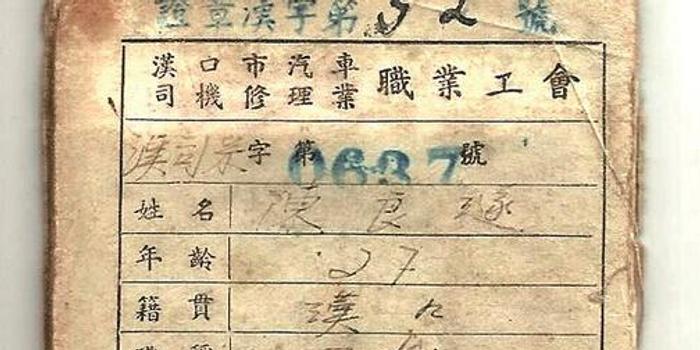 證章漢字第 52 號
漢口市汽車 職業工會
司機修理業
漢司 字第 0637 號
姓名 陳良
年齡 27
籍貫 漢